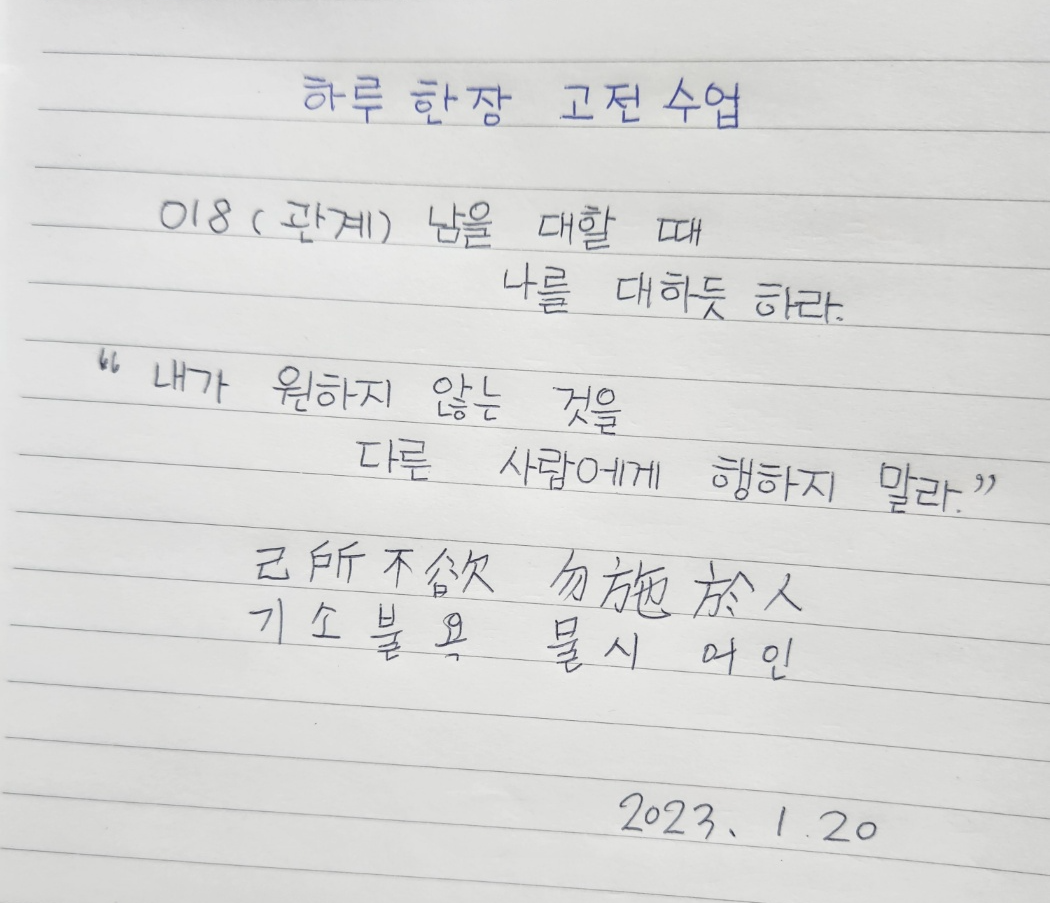 하루 한장 고전 수업
018 (관계) 남을 대할 때
나를 대하듯 하라.
“내가 원하지 않는 것을
다른 사람에게 행하지 말라.”
己所不欲 勿施於人
기소불욕 물시어인
2023. 1. 20